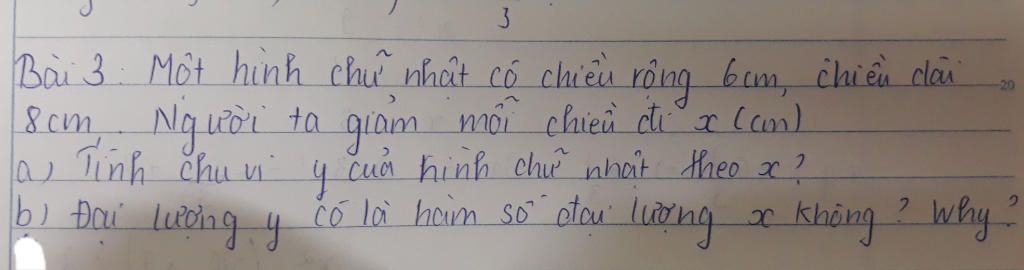 3
Bài 3: Một hình chữ nhật có chiều rộng 6cm, chiều dài
8cm. Người ta giảm mỗi chiều đi x (cm)
a) Tính chu vi y của hình chữ nhật theo x?
b) Đại lượng y có là hàm số đại lượng x không? Why?